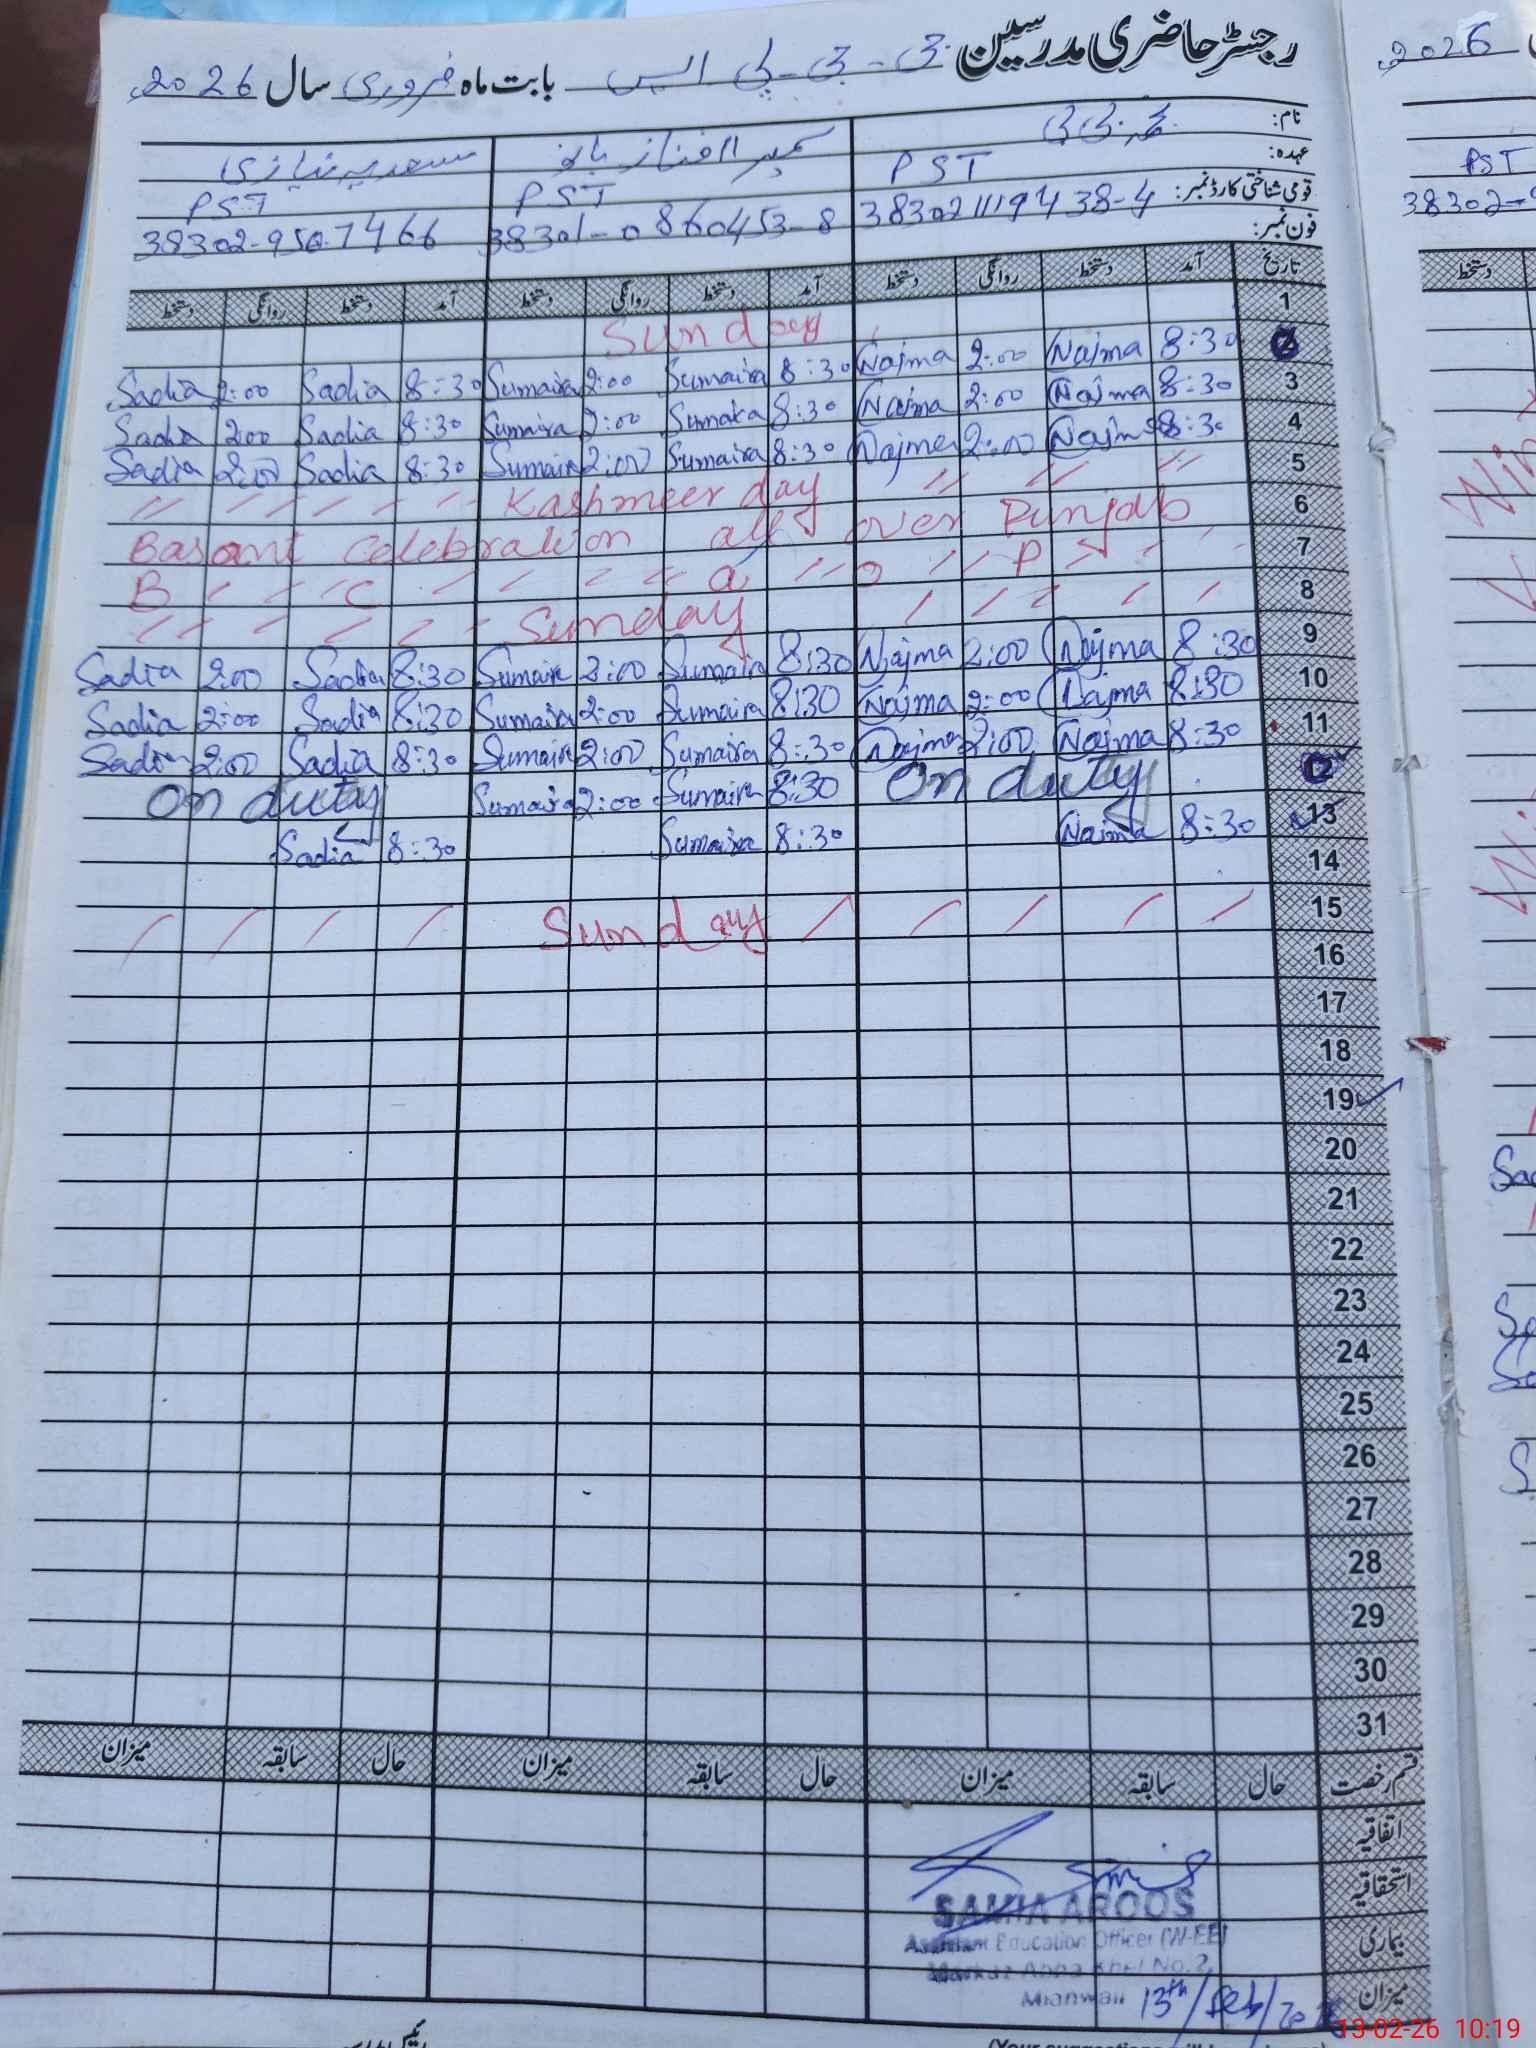 رجسٹر حاضری مدرسین جی۔جی۔پی ایس بابت ماہ فروری سال 2026ء
نام:
عہدہ: PST PST PST
قومی شناختی کارڈ نمبر: 383021119438-4 38301-0860453-8 38302-950.7466
فون نمبر:
تاریخ آمد دستخط روانگی دستخط آمد دستخط روانگی دستخط آمد دستخط روانگی دستخط
1
Sunday
2
Sadia 2:00 Sadia 8:30 Sumaira 2:00 Sumaira 8:30 Najma 2:00 Najma 8:30
3
Sadia 2:00 Sadia 8:30 Sumaira 2:00 Sumaira 8:30 Najma 2:00 Najma 8:30
4
Sadia 2:00 Sadia 8:30 Sumaira 2:00 Sumaira 8:30 Najma 2:00 Najma 8:30
5
Kashmeer day
6
Basant Celebration all over Punjab
7
B C a o P
8
Sunday
9
Sadia 2:00 Sadia 8:30 Sumaira 2:00 Sumaira 8:30 Najma 2:00 Najma 8:30
10
Sadia 2:00 Sadia 8:30 Sumaira 2:00 Sumaira 8:30 Najma 2:00 Najma 8:30
11
Sadia 2:00 Sadia 8:30 Sumaira 2:00 Sumaira 8:30 Najma 2:00 Najma 8:30
12
On duty Sumaira 2:00 Sumaira 8:30 On duty
13
Sadia 8:30 Sumaira 8:30 Najma 8:30
14
15
Sunday
16
17
18
19
20
21
22
23
24
25
26
27
28
29
30
31
قسم رخصت حال سابقہ میزان حال سابقہ میزان حال سابقہ میزان
اتفاقیہ
استحقاقیہ
بیماری
میزان
SAMIA AROOS
Assistant Education Officer (W-EE)
Markaz Abba Khel No.2,
Mianwali 13th/Feb/2026
13-02-26 10:19
2026
PST
38302-
دستخط